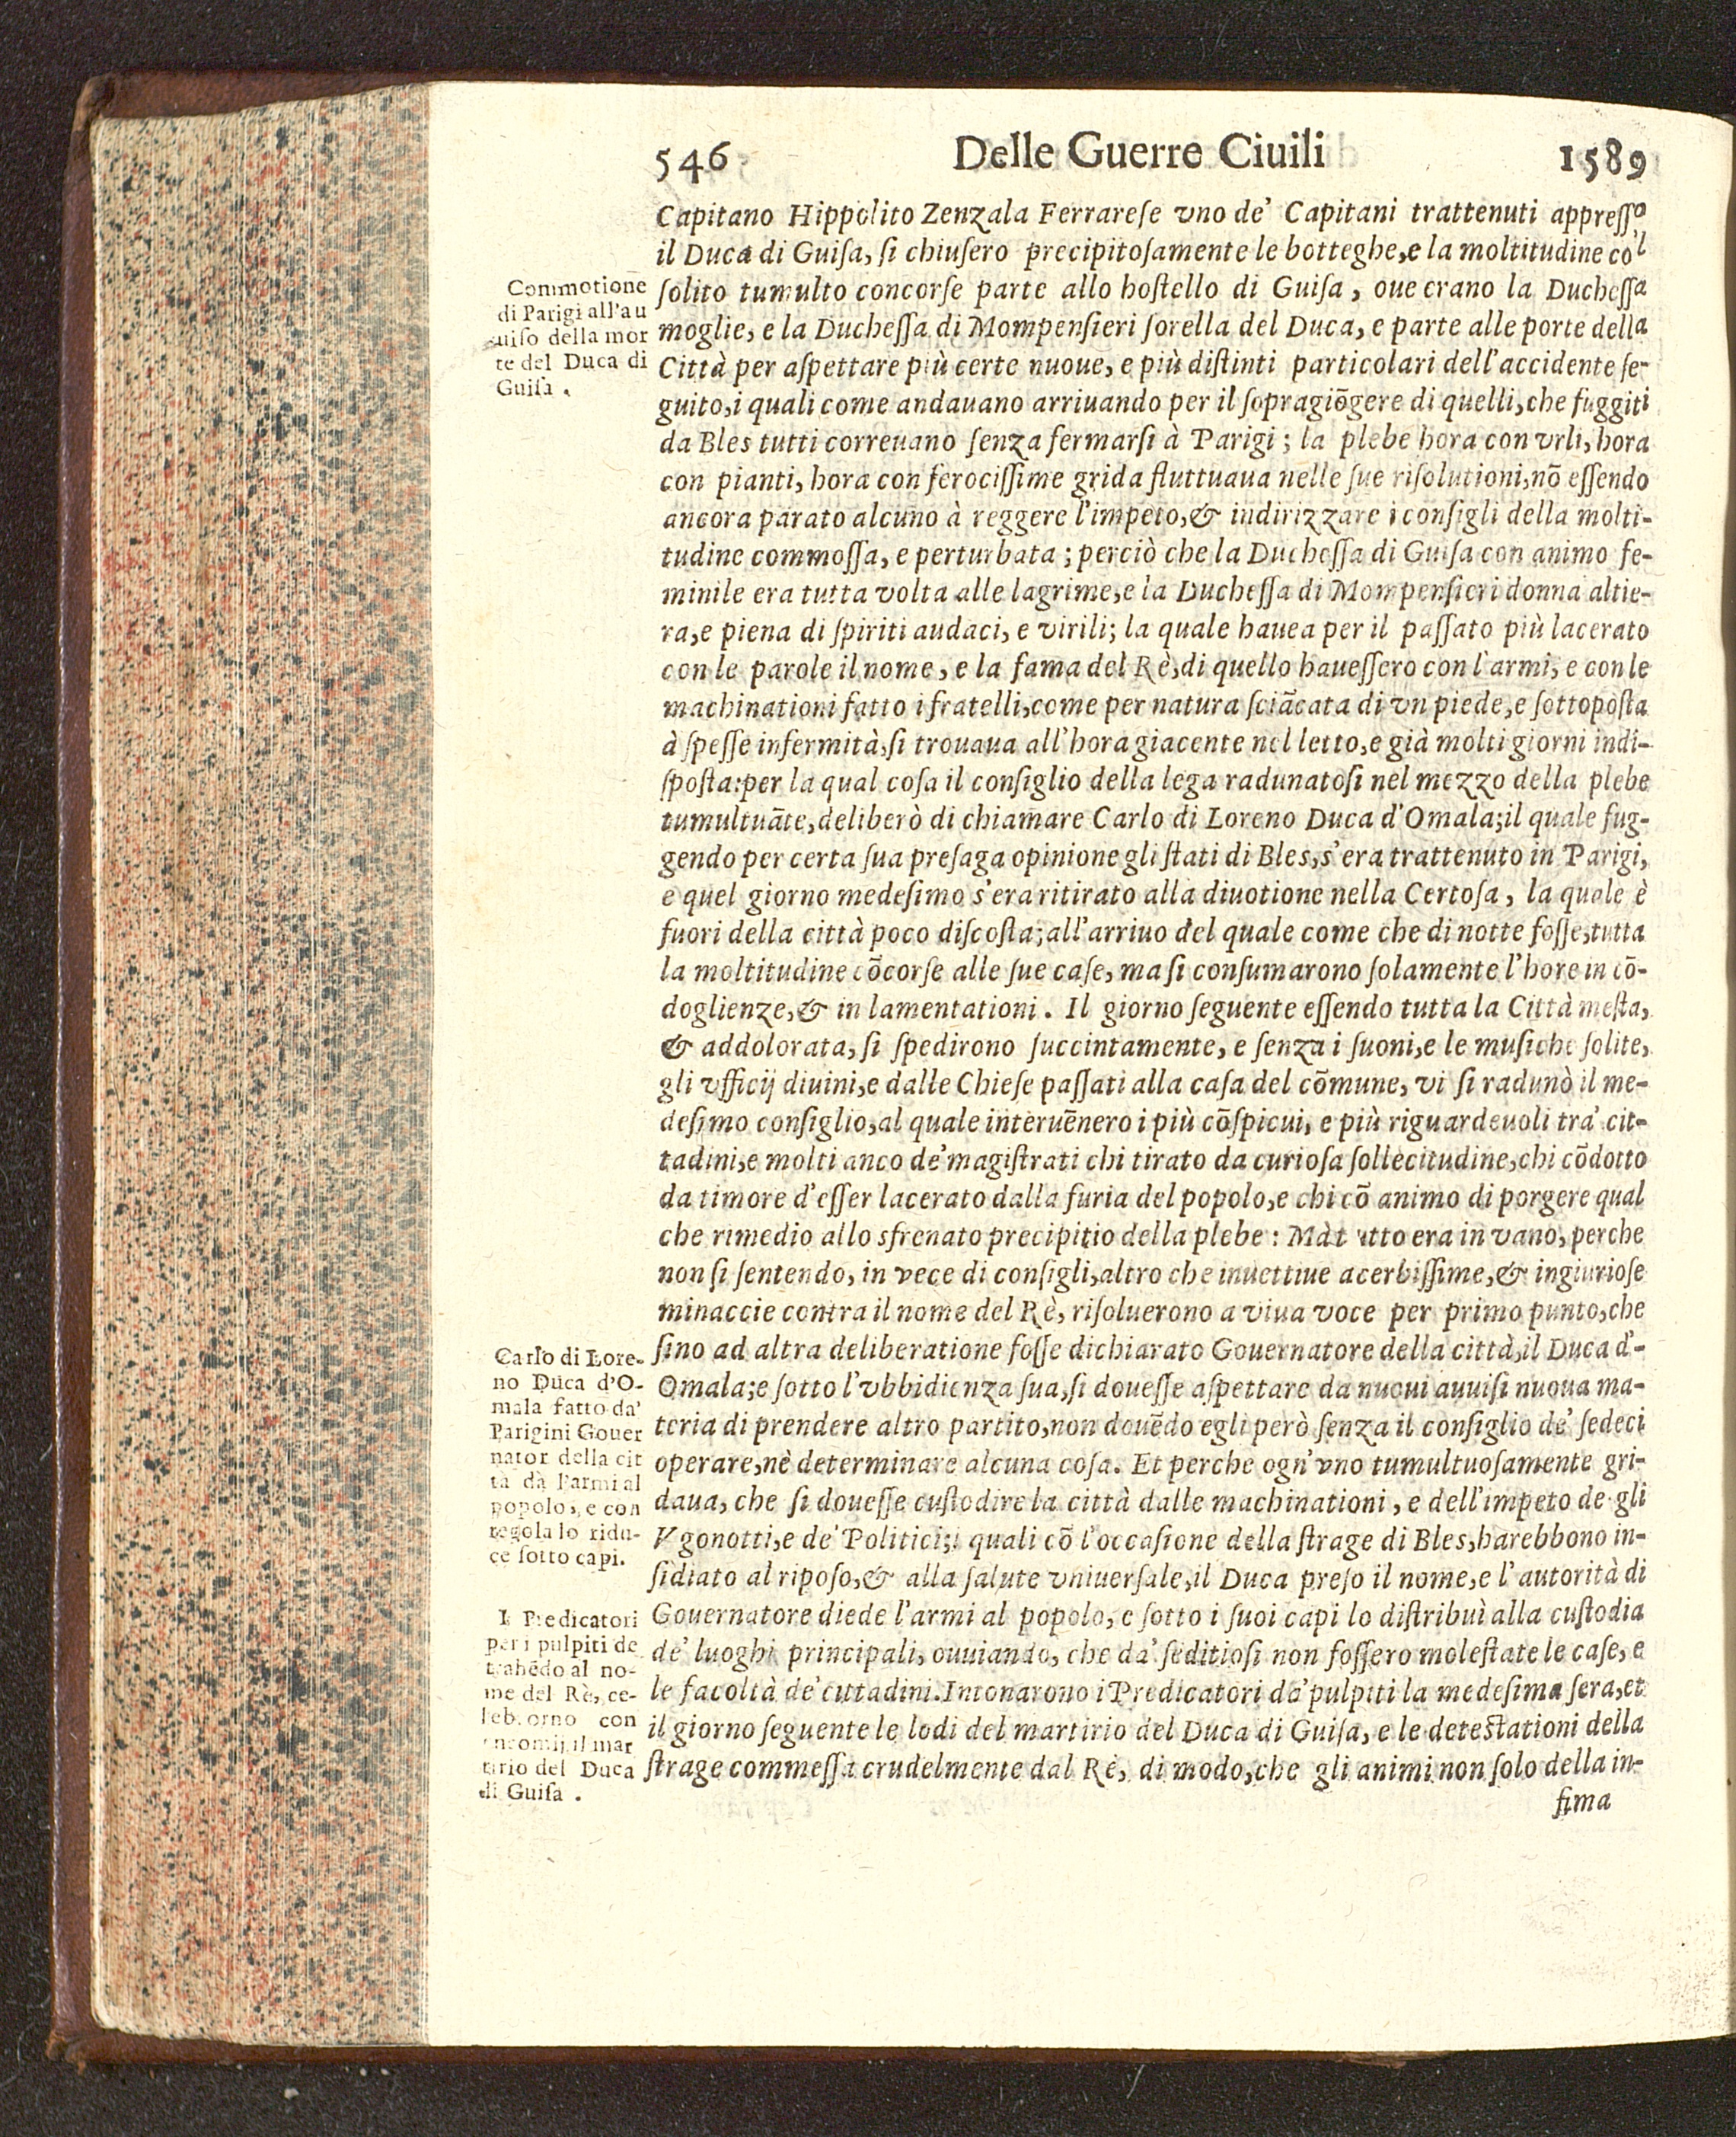 546 Delle Guerre Ciuili 1589
Capitano Hippolito Zenzala Ferrarese vno de' Capitani trattenuti appresso
il Duca di Guisa, si chiusero precipitosamente le botteghe, e la moltitudine co'l
solito tumulto concorse parte allo hostello di Guisa, oue erano la Duchessa
moglie, e la Duchessa di Mompensieri sorella del Duca, e parte alle porte della
Città per aspettare più certe nuoue, e più distinti particolari dell'accidente se-
guito, i quali come andauano arriuando per il sopragiõgere di quelli, che fuggiti
da Bles tutti correuano senza fermarsi à Parigi; la plebe hora con vrli, hora
con pianti, hora con ferocissime grida fluttuaua nelle sue risolutioni, nõ essendo
ancora parato alcuno à reggere l'impeto, & indirizzare i consigli della molti-
tudine commossa, e perturbata; perciò che la Duchessa di Guisa con animo fe-
minile era tutta volta alle lagrime, e la Duchessa di Mompensieri donna altie-
ra, e piena di spiriti audaci, e virili; la quale hauea per il passato più lacerato
con le parole il nome, e la fama del Rè, di quello hauessero con l'armi, e con le
machinationi fatto i fratelli, come per natura sciãcata di vn piede, e sottoposta
à spesse infermità, si trouaua all'hora giacente nel letto, e già molti giorni indi-
sposta: per la qual cosa il consiglio della lega radunatosi nel mezzo della plebe
tumultuãte, deliberò di chiamare Carlo di Loreno Duca d'Omala; il quale fug-
gendo per certa sua presaga opinione gli stati di Bles, s'era trattenuto in Parigi,
e quel giorno medesimo s'era ritirato alla diuotione nella Certosa, la quale è
fuori della città poco discosta; all'arriuo del quale come che di notte fosse, tutta
la moltitudine cõcorse alle sue case, ma si consumarono solamente l'hore in cõ-
doglienze, & in lamentationi. Il giorno seguente essendo tutta la Città mesta,
& addolorata, si spedirono succintamente, e senza i suoni, e le musiche solite,
gli vfficij diuini, e dalle Chiese passati alla casa del cõmune, vi si radunò il me-
desimo consiglio, al quale interuẽnero i più cõspicui, e più riguardeuoli tra' cit-
tadini, e molti anco de' magistrati chi tirato da curiosa sollecitudine, chi cõdotto
da timore d'esser lacerato dalla furia del popolo, e chi cõ animo di porgere qual
che rimedio allo sfrenato precipitio della plebe: Màt utto era in vano, perche
non si sentendo, in vece di consigli, altro che inuettiue acerbissime, & ingiuriose
minaccie contra il nome del Rè, risoluerono a viua voce per primo punto, che
sino ad altra deliberatione fosse dichiarato Gouernatore della città, il Duca d'-
Omala; e sotto l'vbbidienza sua, si douesse aspettare da nuoui auuisi nuoua ma-
teria di prendere altro partito, non douẽdo egli però senza il consiglio de' sedeci
operare, nè determinare alcuna cosa. Et perche ogn'vno tumultuosamente gri-
daua, che si douesse custodire la città dalle machinationi, e dell'impeto de gli
Vgonotti, e de' Politici; i quali cõ l'occasione della strage di Bles, harebbono in-
sidiato al riposo, & alla salute vniuersale, il Duca preso il nome, e l'autorità di
Gouernatore diede l'armi al popolo, e sotto i suoi capi lo distribuì alla custodia
de' luoghi principali, ouuiando, che da' seditiosi non fossero molestate le case, e
le facoltà de' cittadini. Intonarono i Predicatori da' pulpiti la medesima sera, et
il giorno seguente le lodi del martirio del Duca di Guisa, e le detestationi della
strage commessa crudelmente dal Rè, di modo, che gli animi non solo della in-
fima
Commotione
di Parigi all'au
uiso della mor
te del Duca di
Guisa.
Carlo di Lore-
no Duca d'O-
mala fatto da'
Parigini Gouer
nator della cit
tà dà l'armi al
popolo, e con
regola lo ridu-
ce sotto capi.
I Predicatori
per i pulpiti de
trahẽdo al no-
me del Rè, ce-
leb orno con
encomij il mar
tirio del Duca
di Guisa.